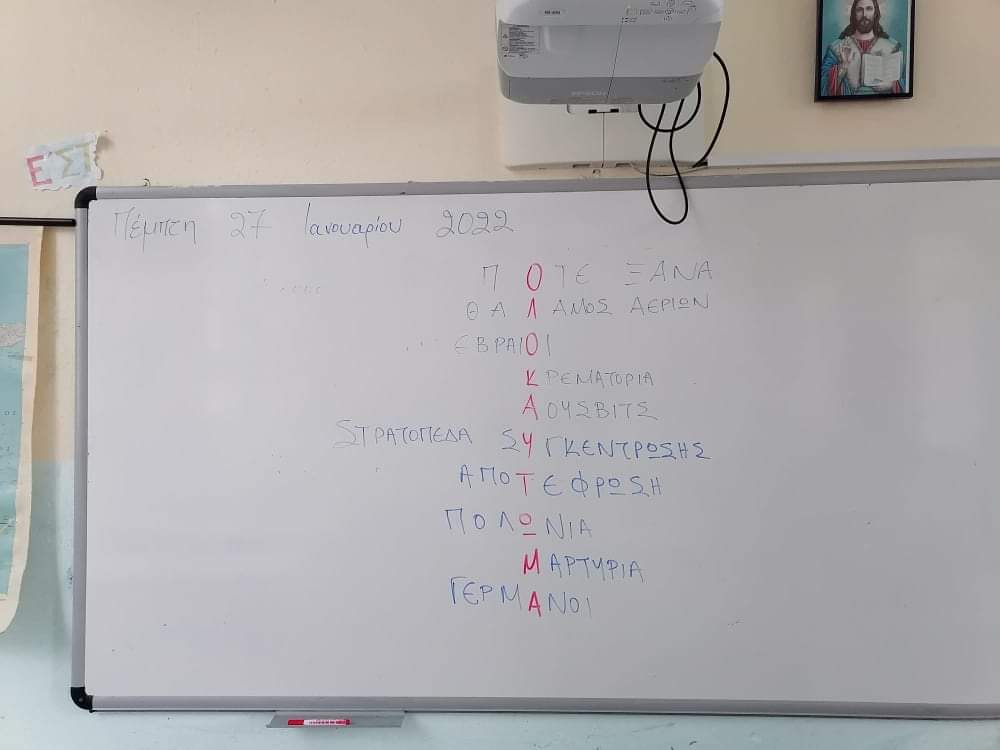 EPSON
Ε ΣΤ
Πέμπτη 27 Ιανουαρίου 2022
ΠΟΤΕ ΞΑΝΑ
ΘΑΛΑΜΟΣ ΑΕΡΙΩΝ
ΕΒΡΑΙΟΙ
ΚΡΕΜΑΤΟΡΙΑ
ΑΟΥΣΒΙΤΣ
ΣΤΡΑΤΟΠΕΔΑ ΣΥΓΚΕΝΤΡΩΣΗΣ
ΑΠΟΤΕΦΡΩΣΗ
ΠΟΛΩΝΙΑ
ΜΑΡΤΥΡΙΑ
ΓΕΡΜΑΝΟΙ